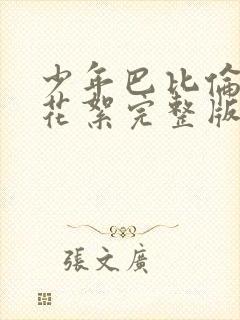 少年巴比倫
花絮完整版
張文廣